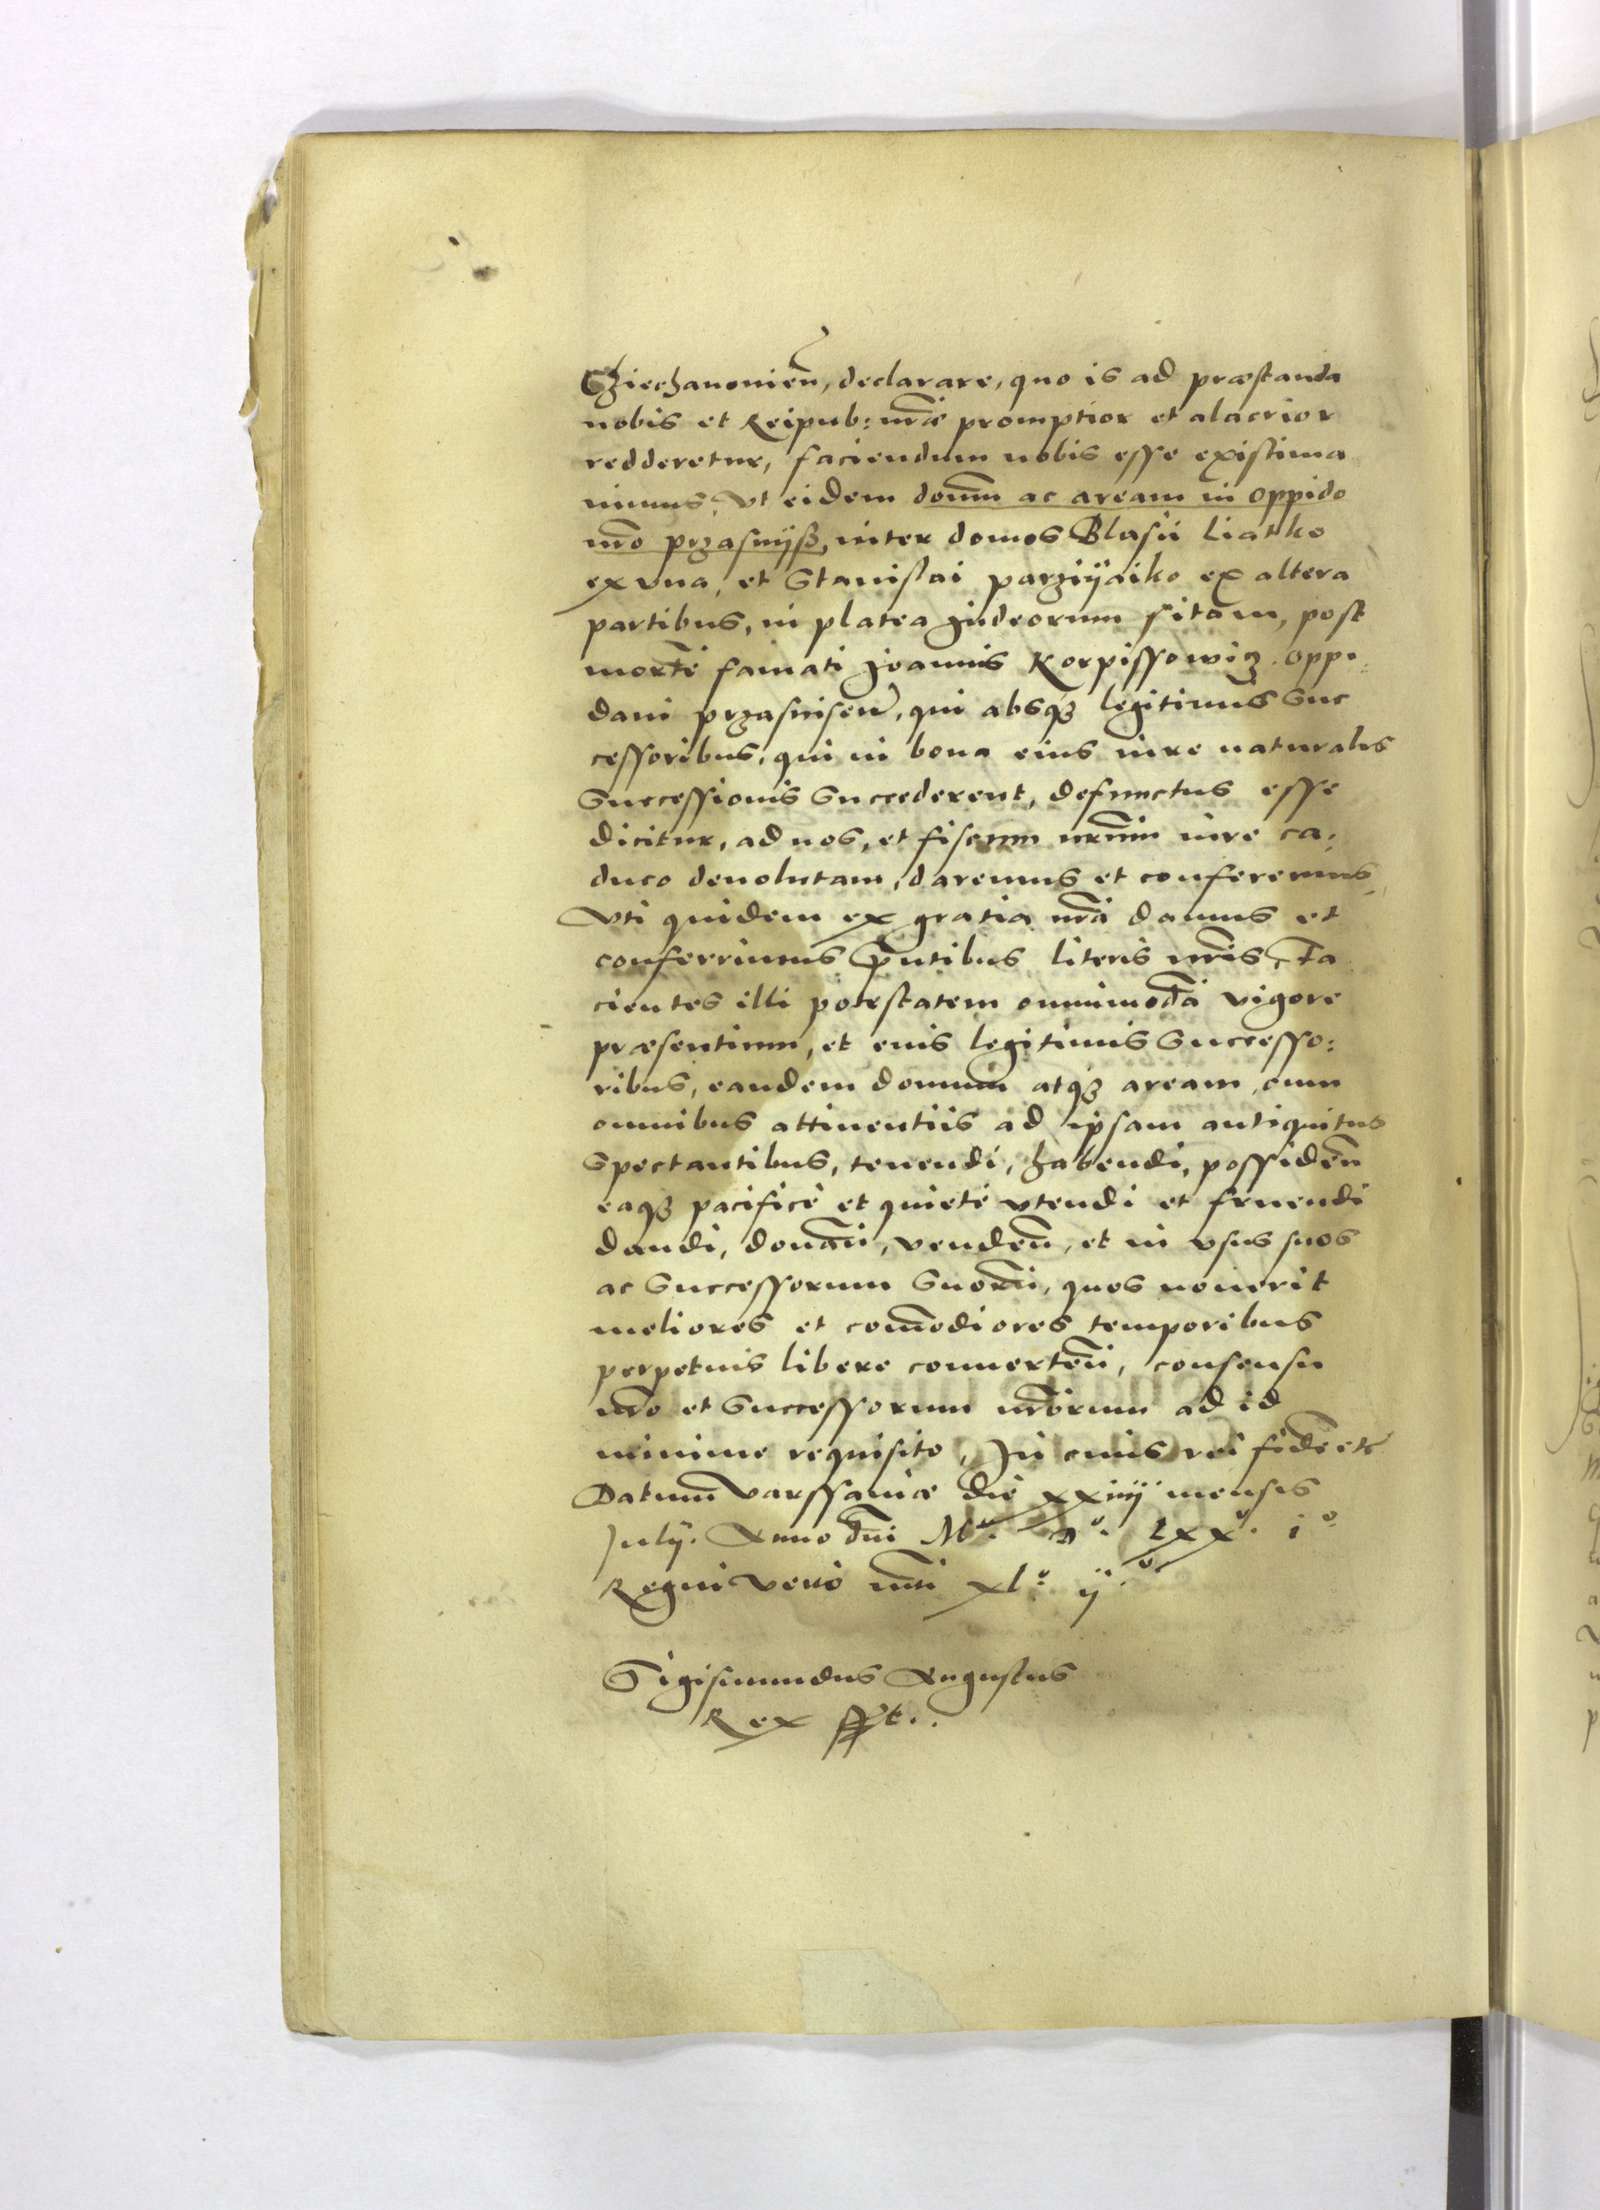 Cziechanonien̄, declarare, quo is ad præstanda
nobis et Reipub: nr̄æ promptior et alacrior
redderetur, faciendum nobis esse existima
uimus, vt eidem domum ac aream in oppido
nr̄o przasnijsz, inter domos Blasii Liatko
ex vna, et Stanislai parzijaiko ex altera
partibus, in platea Judeorum sitam, post
mortē famati Joannis Korpissowicz oppi:
dani przasnisen̄, qui absq3 legitimis suc
cessoribus, qui in bona eius iure naturalis
Successionis Succederent, defunctus esse
dicitur, ad nos, et fiscum nr̄um iure ca,
duco deuolutam, daremus et conferemus,
Vti quidem ex gratia nr̄a damus et
conferrimus pn̄tibus literis nr̄is, Fa
cientes illi potestatem omnimodā vigore
præsentium, et euis legitimis Successo:
ribus, eandem domum atq3 aream, cum
omnibus attinentiis ad ipsam antiquitus
Spectantibus, tenendi, habendi, possiden̄
eaq3 pacificè et quietè vtendi et fruendi
dandi, donan̄, venden̄, et in vsus suos
ac Successorum Suorū, quos nouerit
meliores et com̄odiores temporibus
perpetuis libere conuerten̄, consensu
nr̄o et Successorum nr̄orum ad id
minime requisito, In cuius rei fidē etc̄
Datum Varssaviæ die xxiiij mensis
Julij. Anno dn̄i Mº. Dº. Lxxº. iº
Regni vero nr̄i xlº ijº
Sigismundus Augustus
Rex sspt.